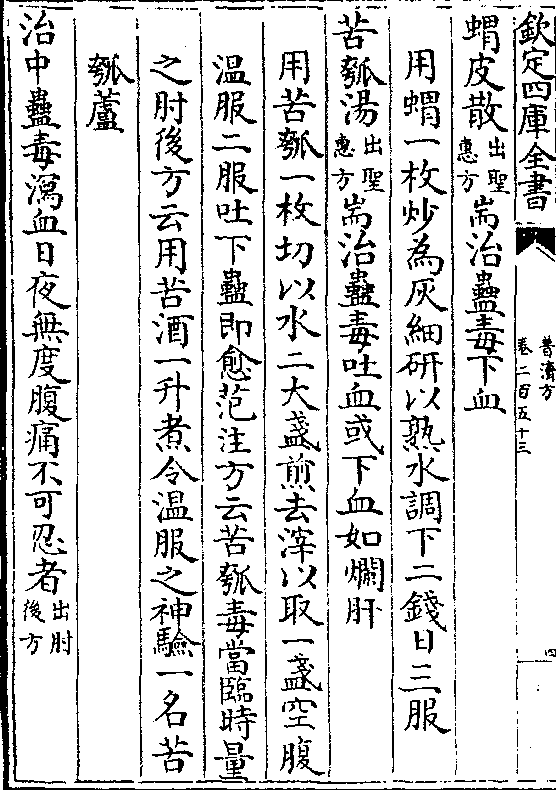 欽定四庫全書
普濟方
卷二百五十三
四
蝟皮散出聖惠方耑治蠱毒下血
用蝟一枚炒為灰細研以熟水調下二錢日三服
苦瓠湯出聖惠方耑治蠱毒吐血或下血如爛肝
用苦瓠一枚切以水二大盞煎去滓以取一盞空腹
温服二服吐下蠱即愈范汪方云苦瓠毒當臨時量
之肘後方云用苦酒一升煮令温服之神驗一名苦
瓠蘆
治中蠱毒瀉血日夜無度腹痛不可忍者出肘後方